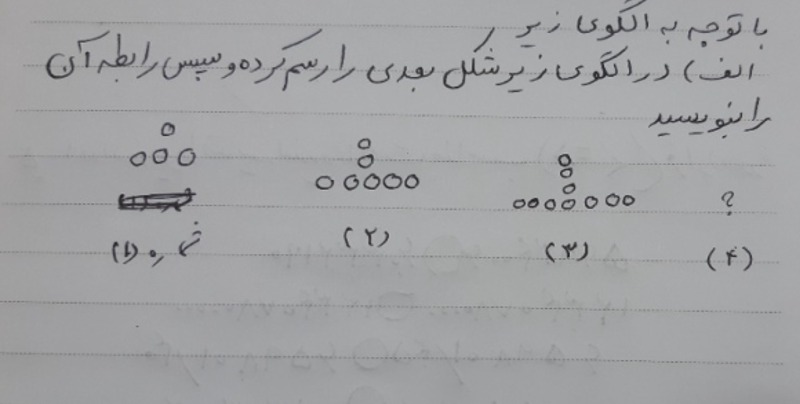 با توجه به الگوی زیر
الف) در الگوی زیر شکل بعدی را رسم کرده و سپس رابطه آن
را بنویسید
؟
شماره (۱) (۲) (۳) (۴)